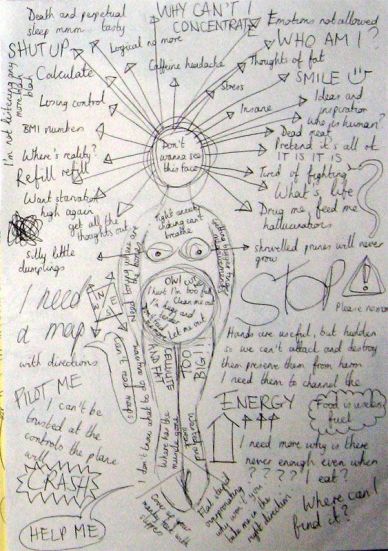 Death and perpetual
sleep mmm tasty
WHY CAN'T I
CONCENTRATE
Emotions not allowed
SHUT UP
Logical no more
WHO AM I?
Caffeine headache
Thoughts of fat
I'm not listening
more blah
blah
Calculate
SMILE
Stress
Losing control
Insane
Ideas and
inspiration
Who is human?
BMI numbers
Dead meat
Don't
wanna see
this face
Pretend it's all ok
IT IS IT IS
Where's reality?
Refill refill
Tired of fighting
Want starvation
high again
What's life
Drug me, feed me
hallucinations
get all the
thoughts out
Tight anxiety
chasing can't
breathe
Silly little
dumplings
shrivelled prunes will never
grow
Ow!
I hurt I'm too full
Clean me out
let me out
I need
a map
with directions
STOP
Please no more
Hands are useful, but hidden
so we can't attack and destroy
then preserve them from harm
I need them to channel the
ENERGY
Food is useless
fuel
CELLULITE
AND FAT
TOO
BIG!!
I don't know what to do anymore
PILOT ME
I can't be
trusted at the
controls the plane
will
CRASH
HELP ME
I need more why is there
never enough even when
? ? ? ? I eat?
Where can I
find it?
Cover up your
nasty feet with
slippers
Flat stupid
why won't you
take me in the
right direction